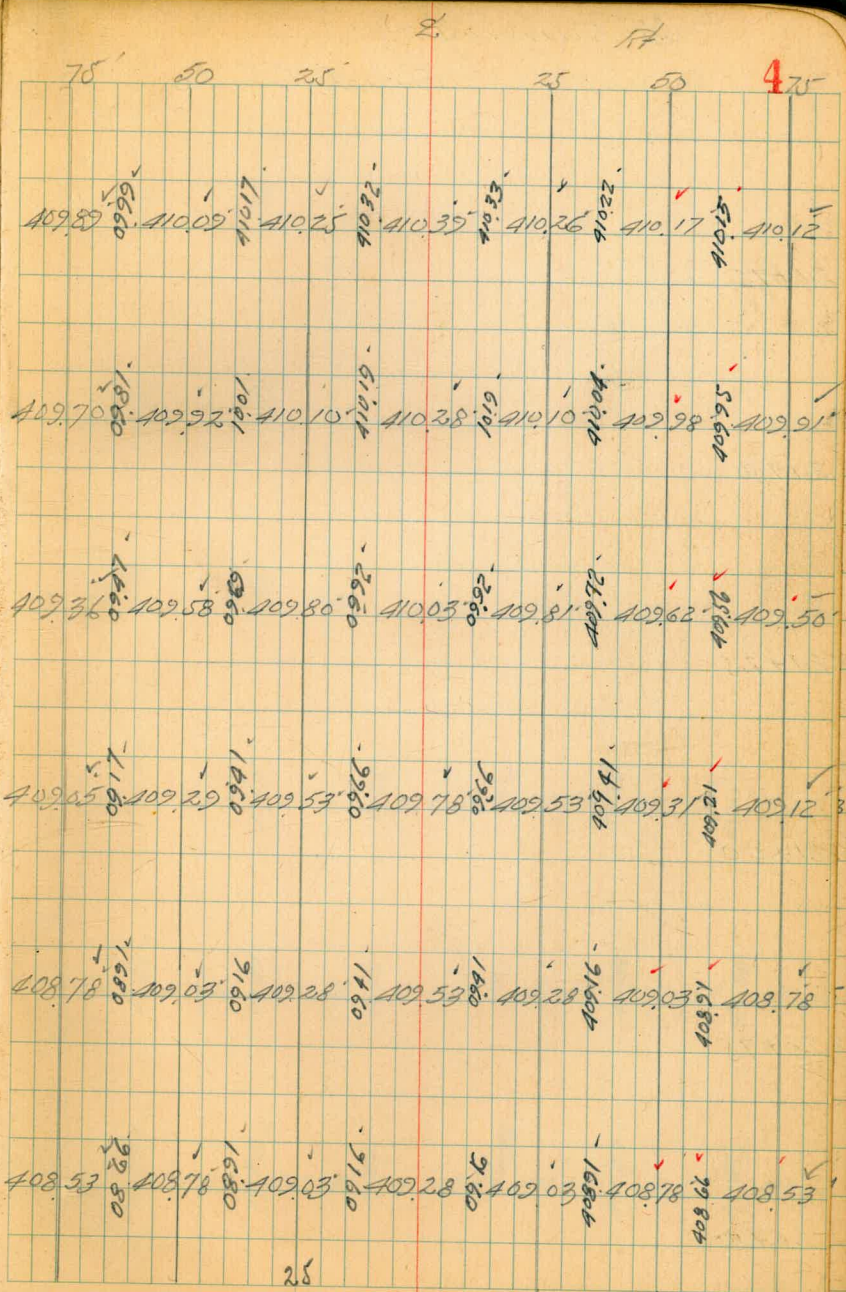 ℄ Rt 4
75 50 25 25 50 75
409.89 09.99 410.09 410.17 410.25 410.32 410.39 410.33 410.26 410.22 410.17 410.15 410.12
409.70 09.81 409.92 10.01 410.10 410.19 410.28 10.19 410.10 410.04 409.98 409.95 409.91
409.36 09.47 409.58 09.69 409.80 09.92 410.03 09.92 409.81 409.72 409.62 409.56 409.50
409.05 09.17 409.29 09.41 409.53 09.66 409.78 09.66 409.53 409.41 409.31 409.21 409.12
408.78 08.91 409.03 09.16 409.28 09.41 409.53 09.41 409.28 409.16 409.03 408.91 408.78
408.53 08.66 408.78 08.91 409.03 09.16 409.28 09.16 409.03 408.91 408.78 408.66 408.53
25